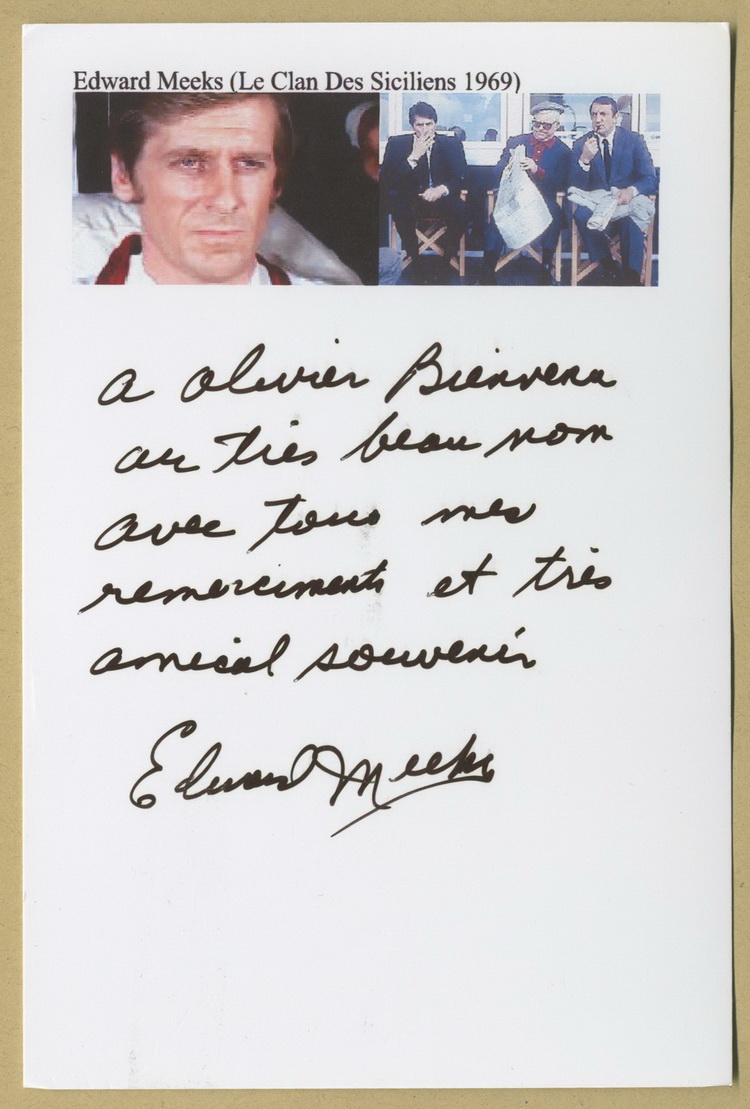 Edward Meeks (Le Clan Des Siciliens 1969)
A olivier Bienvenu
au très beau nom
avec tous mes
remerciments et très
amical souvenir
Edward Meeks